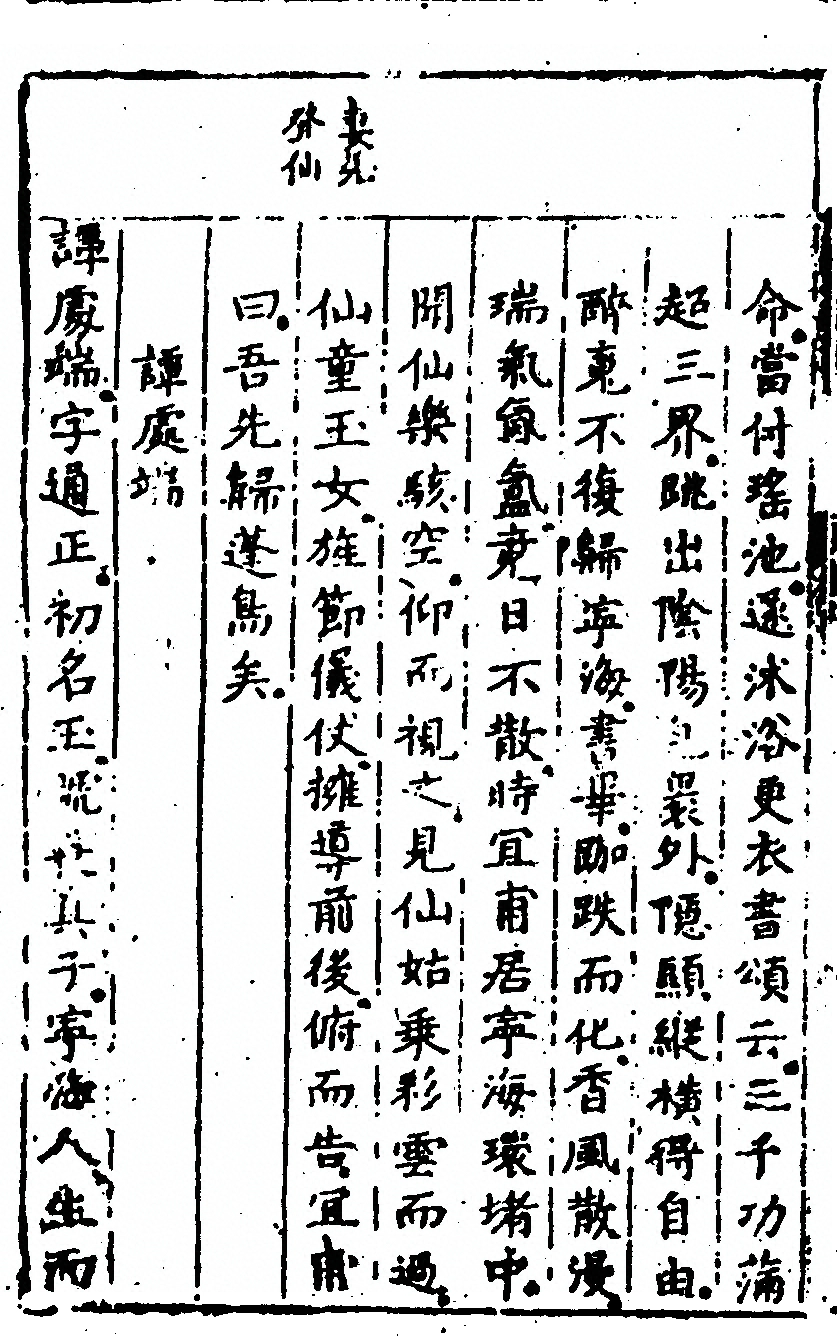 妻先
登仙
命當付瑤池遂沐浴更衣書頌云三千功滿
超三界跳出陰陽包裹外隱顯縱横得自由
醉䰟不復歸寧海書畢跏趺而化香風散漫
瑞氣氤氳竟日不散時宜甫居寧海環堵中
聞仙樂駭空仰而視之見仙姑乗彩雲而過
仙童玉女旌節儀仗擁導前後俯而告宜甫
曰吾先歸蓬島矣
譚處端
譚處端字通正初名玉號長真子寧海人生而